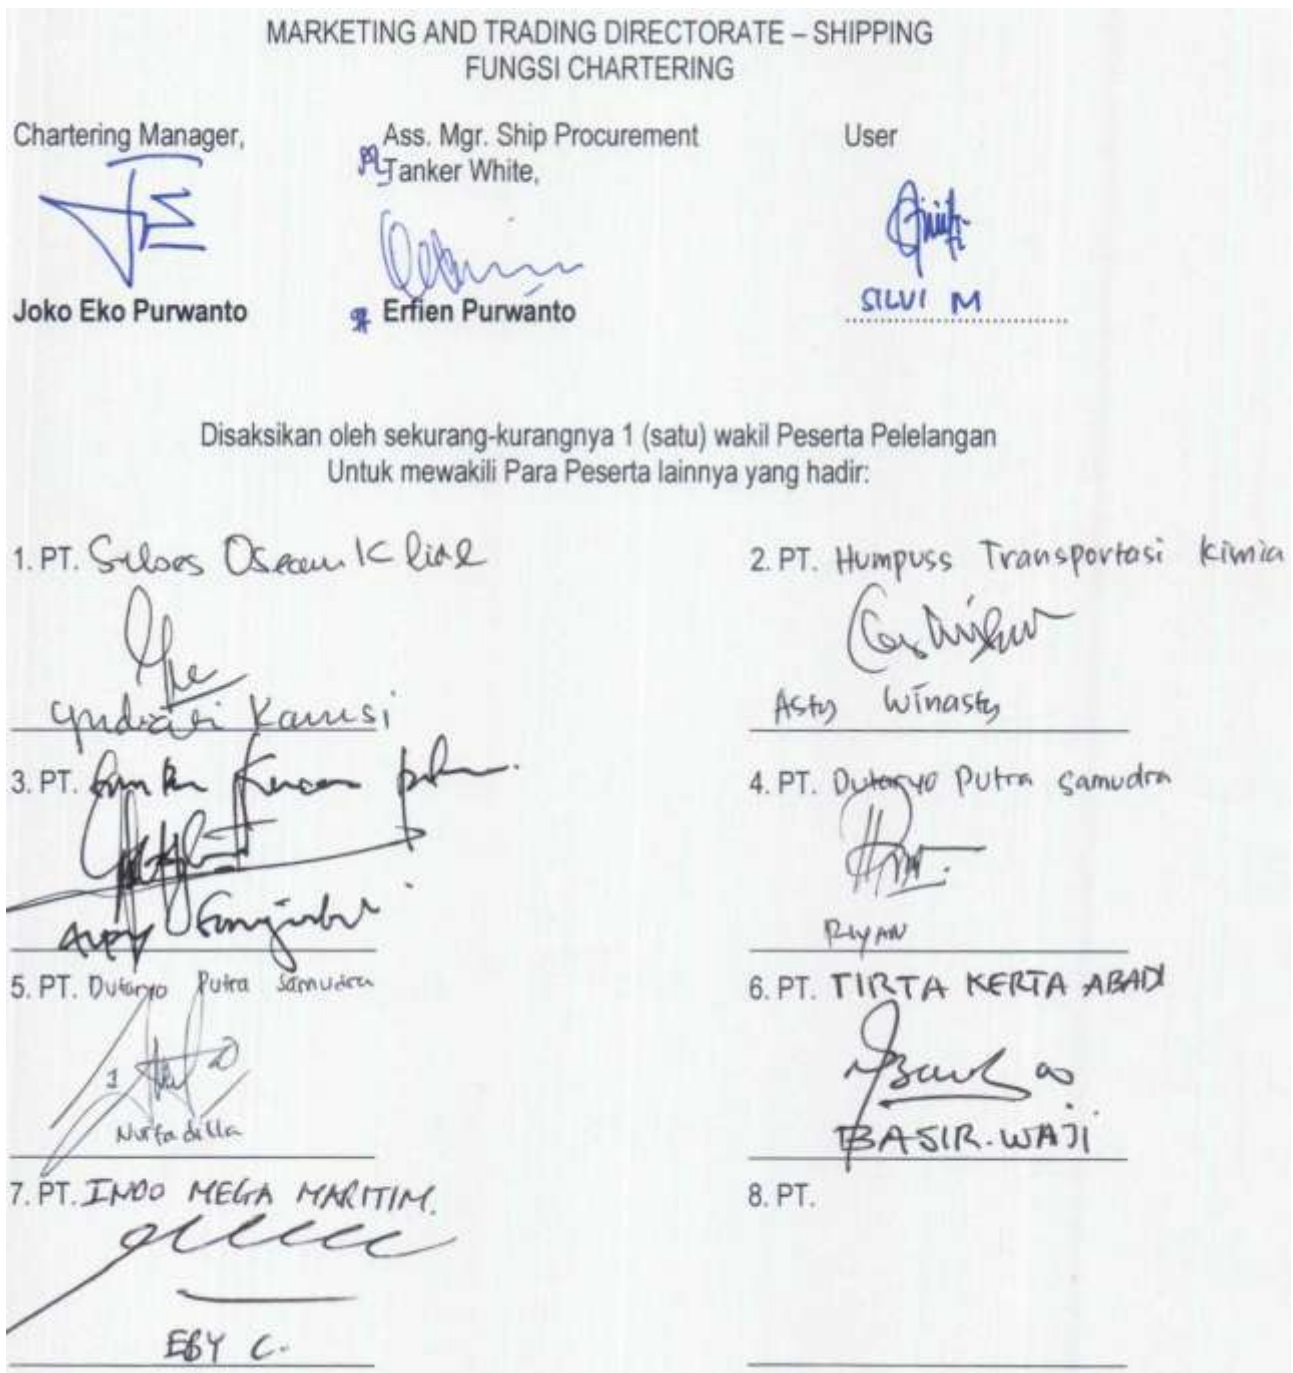 MARKETING AND TRADING DIRECTORATE – SHIPPING
FUNGSI CHARTERING
Chartering Manager,
Ass. Mgr. Ship Procurement
Tanker White,
User
Joko Eko Purwanto
Erfien Purwanto
SILVI M
Disaksikan oleh sekurang-kurangnya 1 (satu) wakil Peserta Pelelangan
Untuk mewakili Para Peserta lainnya yang hadir:
1. PT.
2. PT. Humpuss Transportasi Kimia
Asty Winasty
3. PT.
4. PT. Dutaryo Putra Samudra
RIYAN
5. PT. Dutaryo Putra Samudra
Nurfadilla
6. PT. TIRTA KERTA ABADI
BASIR.WAJI
7. PT. INDO MEGA MARITIM.
EBY C.
8. PT.